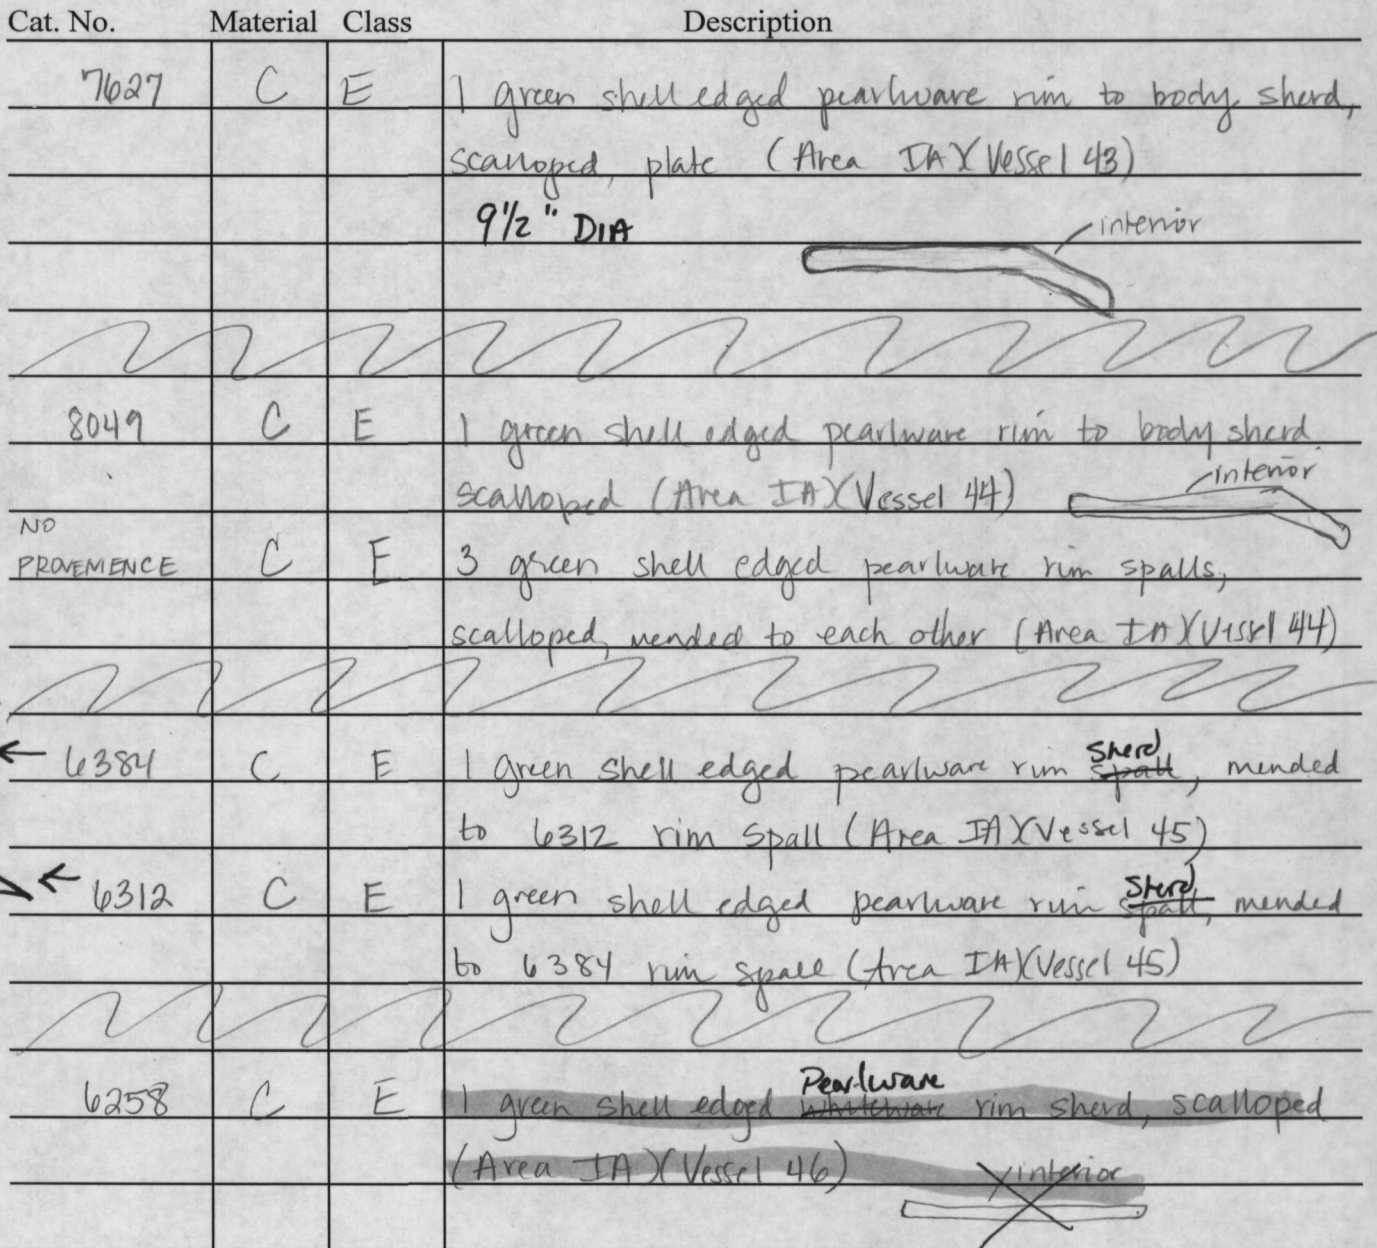 Cat. No. Material Class Description
7627 C E 1 green shell edged pearlware rim to body sherd,
scalloped, plate (Area IA)(Vessel 43)
9 1/2" DIA
interior
8049 C E 1 green shell edged pearlware rim to body sherd
scalloped (Area IA)(Vessel 44) interior
NO
PROVEMENCE C E 3 green shell edged pearlware rim spalls,
scalloped, mended to each other (Area IA)(Vessel 44)
sherd
← 6384 C E 1 green shell edged pearlware rim spall, mended
to 6312 rim spall (Area IA)(Vessel 45)
sherd
← 6312 C E 1 green shell edged pearlware rim spall, mended
to 6384 rim spall (Area IA)(Vessel 45)
Pearlware
6258 C E 1 green shell edged whiteware rim sherd, scalloped
(Area IA)(Vessel 46) interior